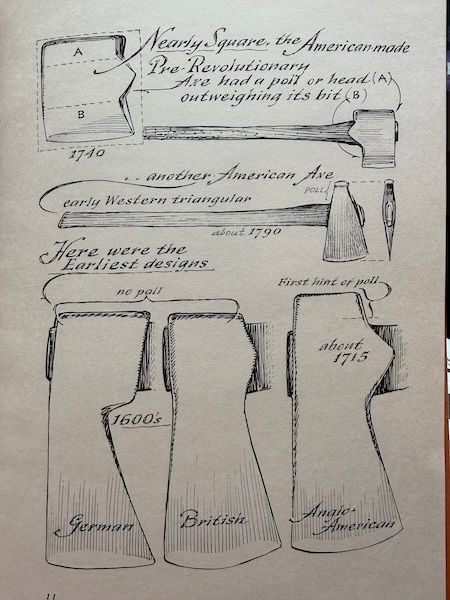 Nearly Square, the American-made
Pre-Revolutionary
Axe had a poll or head (A)
outweighing its bit (B)
A
B
1740
.. another American Axe
early Western triangular
POLL
about 1790
Here were the
Earliest designs
no poll
First hint of poll
about
1715
1600's
German
British
Anglo-
American
11